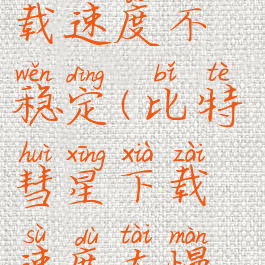 载速度不
wěn dìng bǐ tè
稳定(比特
huì xīng xià zài
彗星下载
sù dù tài màn
速度太慢